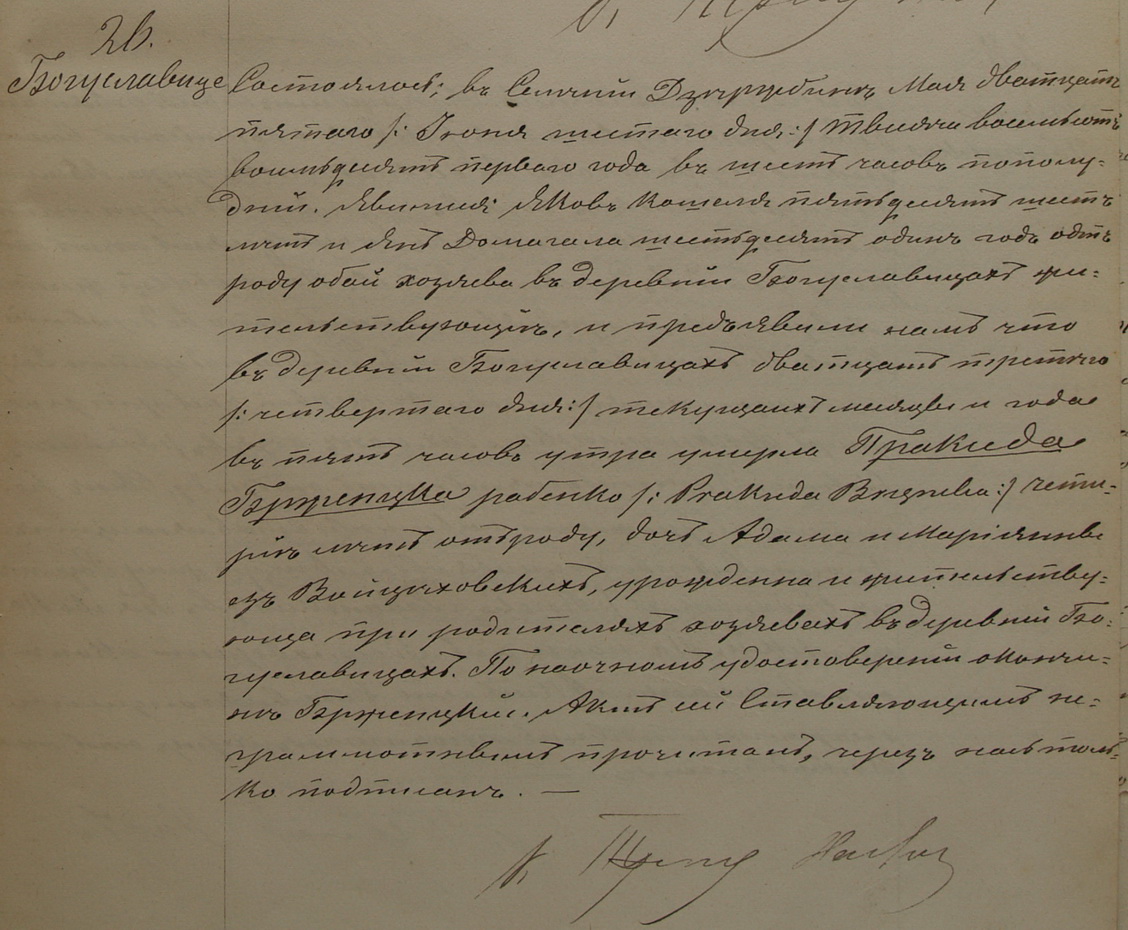 26.
Богуславице
Состоялось; въ Селѣ Дзържбинъ Мая дватцать
пятаго /: Іюня шестаго дня :/ тысяча восемьсотъ
восемьдесятъ перваго года въ шесть часовъ пополу-
дни. Явились Яковъ Кошеля пятьдесятъ шесть
лѣтъ и Янъ Домагала шестьдесятъ одинъ годъ отъ
роду обаи хозяева въ деревни Богуславицахъ жи-
тельствующіи, и предъявили намъ что
въ деревни Богуславицахъ дватцать третяго
/: четвертаго дня :/ текущихъ мѣсяца и года
въ пять часовъ утра умерла Пракида
Брженицка рабенко /: Prakida :/ четы-
ри лѣтъ отъ роду, дочь Адама и Маріянны
изъ Войцѣховскихъ, урожденна и жительству-
юща при родителяхъ хозяевахъ въ деревни Бо-
гуславицахъ. По наочномъ удостовереніи о кончи-
нѣ Брженицкій. Актъ сей Ставляющимъ не-
граммотнымъ прочитанъ, черезъ насъ толь-
ко подписанъ. —